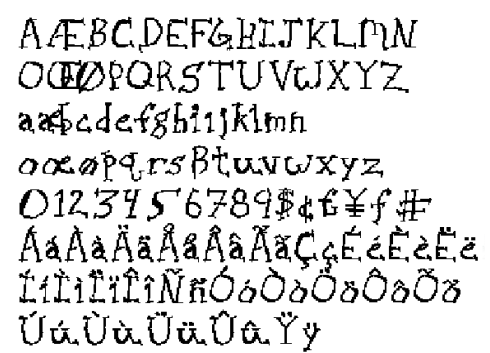 AÆBCDEFGHIJKLMN
OŒØPQRSTUVWXYZ
aæbcdefghiıjklmn
oœøpqrsßtuvwxyz
0123456789$¢£¥ƒ#
ÁáÀàÄäÅåÂâÃãÇçÉéÈèËë
ÍíÌìÏïÎîÑñÓóÒòÖöÔôÕõ
ÚúÙùÜüÛûŸÿ